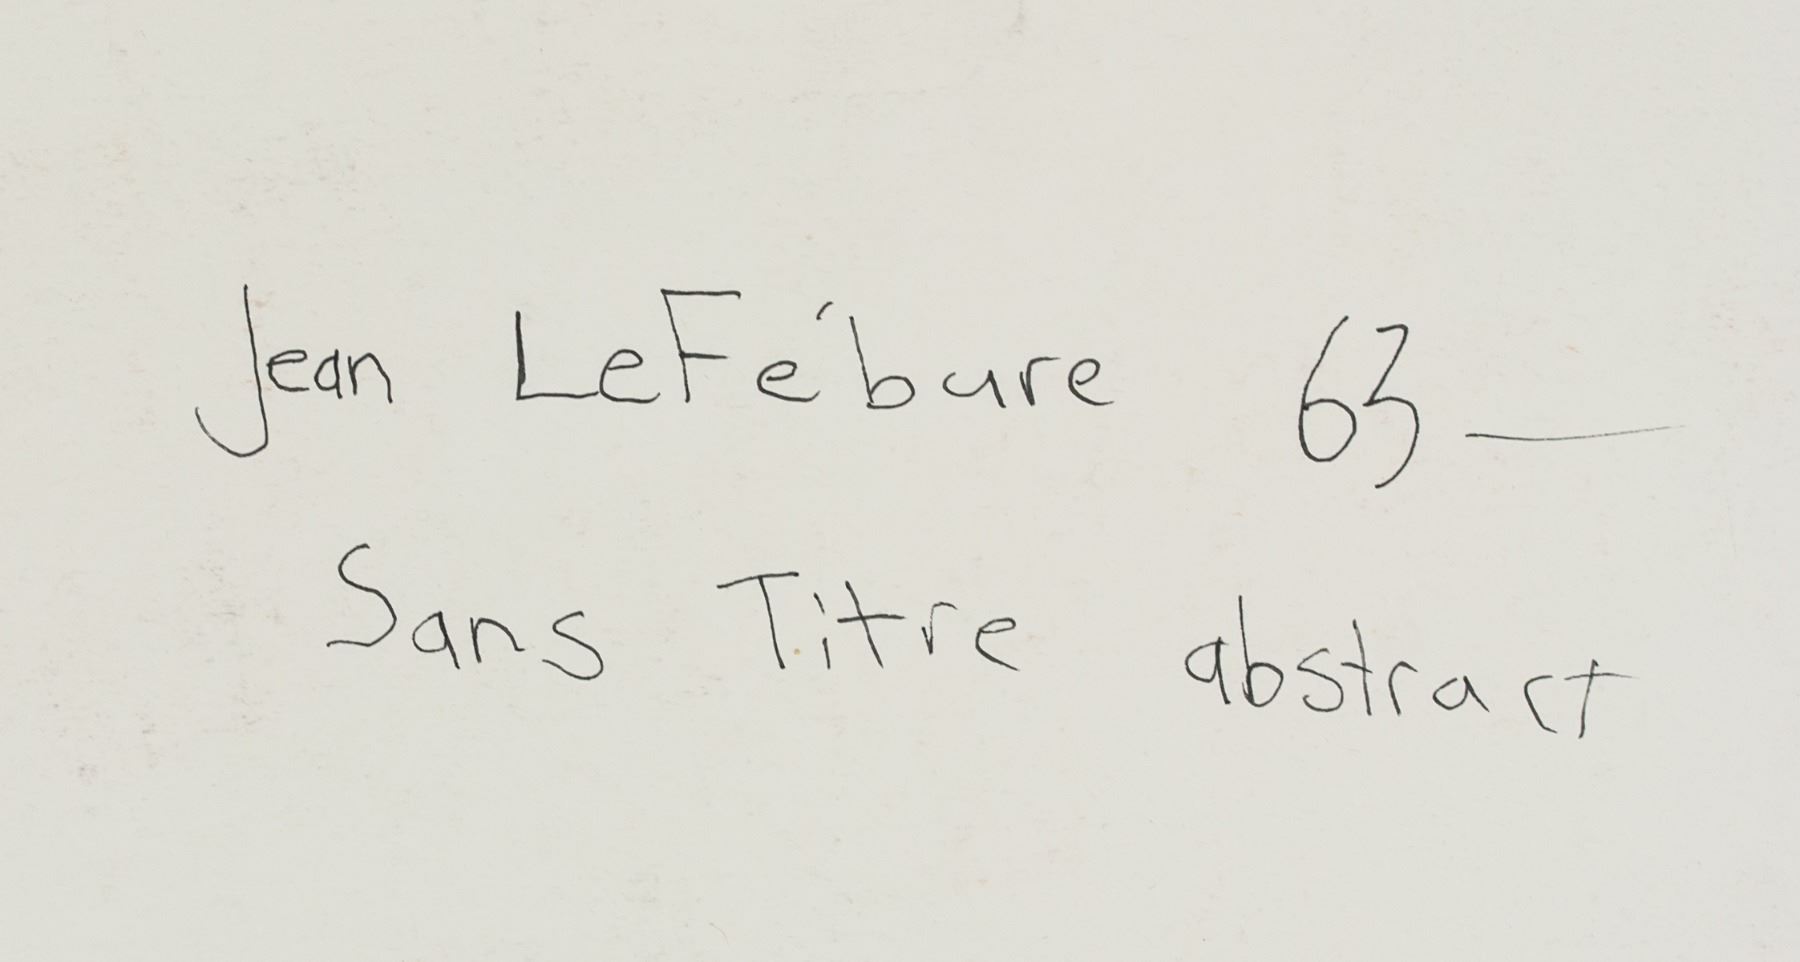 Jean LeFébure 63
Sans Titre abstract